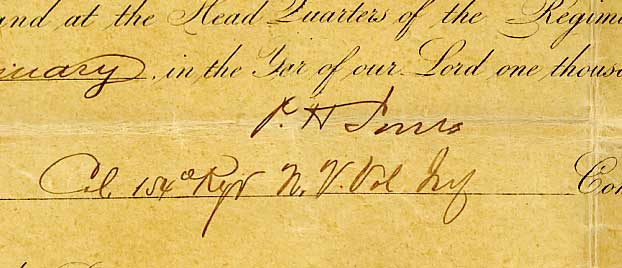 and at the Head Quarters of the Regim
nuary in the Year of our Lord one thous
P. H Jones
Col. 154th Regt N. Y. Vol Inf Co